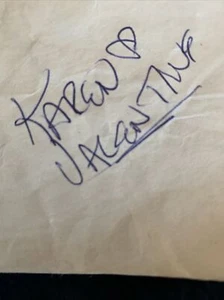 KAREN
VALENTINE